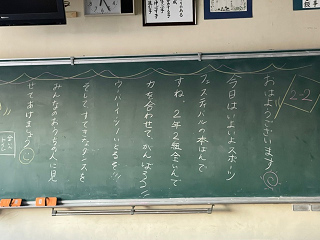 2-2
おはようございます
今日はいよいよスポーツ
フェスティバルの本ばんで
すね。2年2組全いんで
力を合わせて、がんばろう!!
ウーハーイッパーとるぞ!!
そして、すてきなダンスを
みんなのおうちの人に見
せてあげましょう